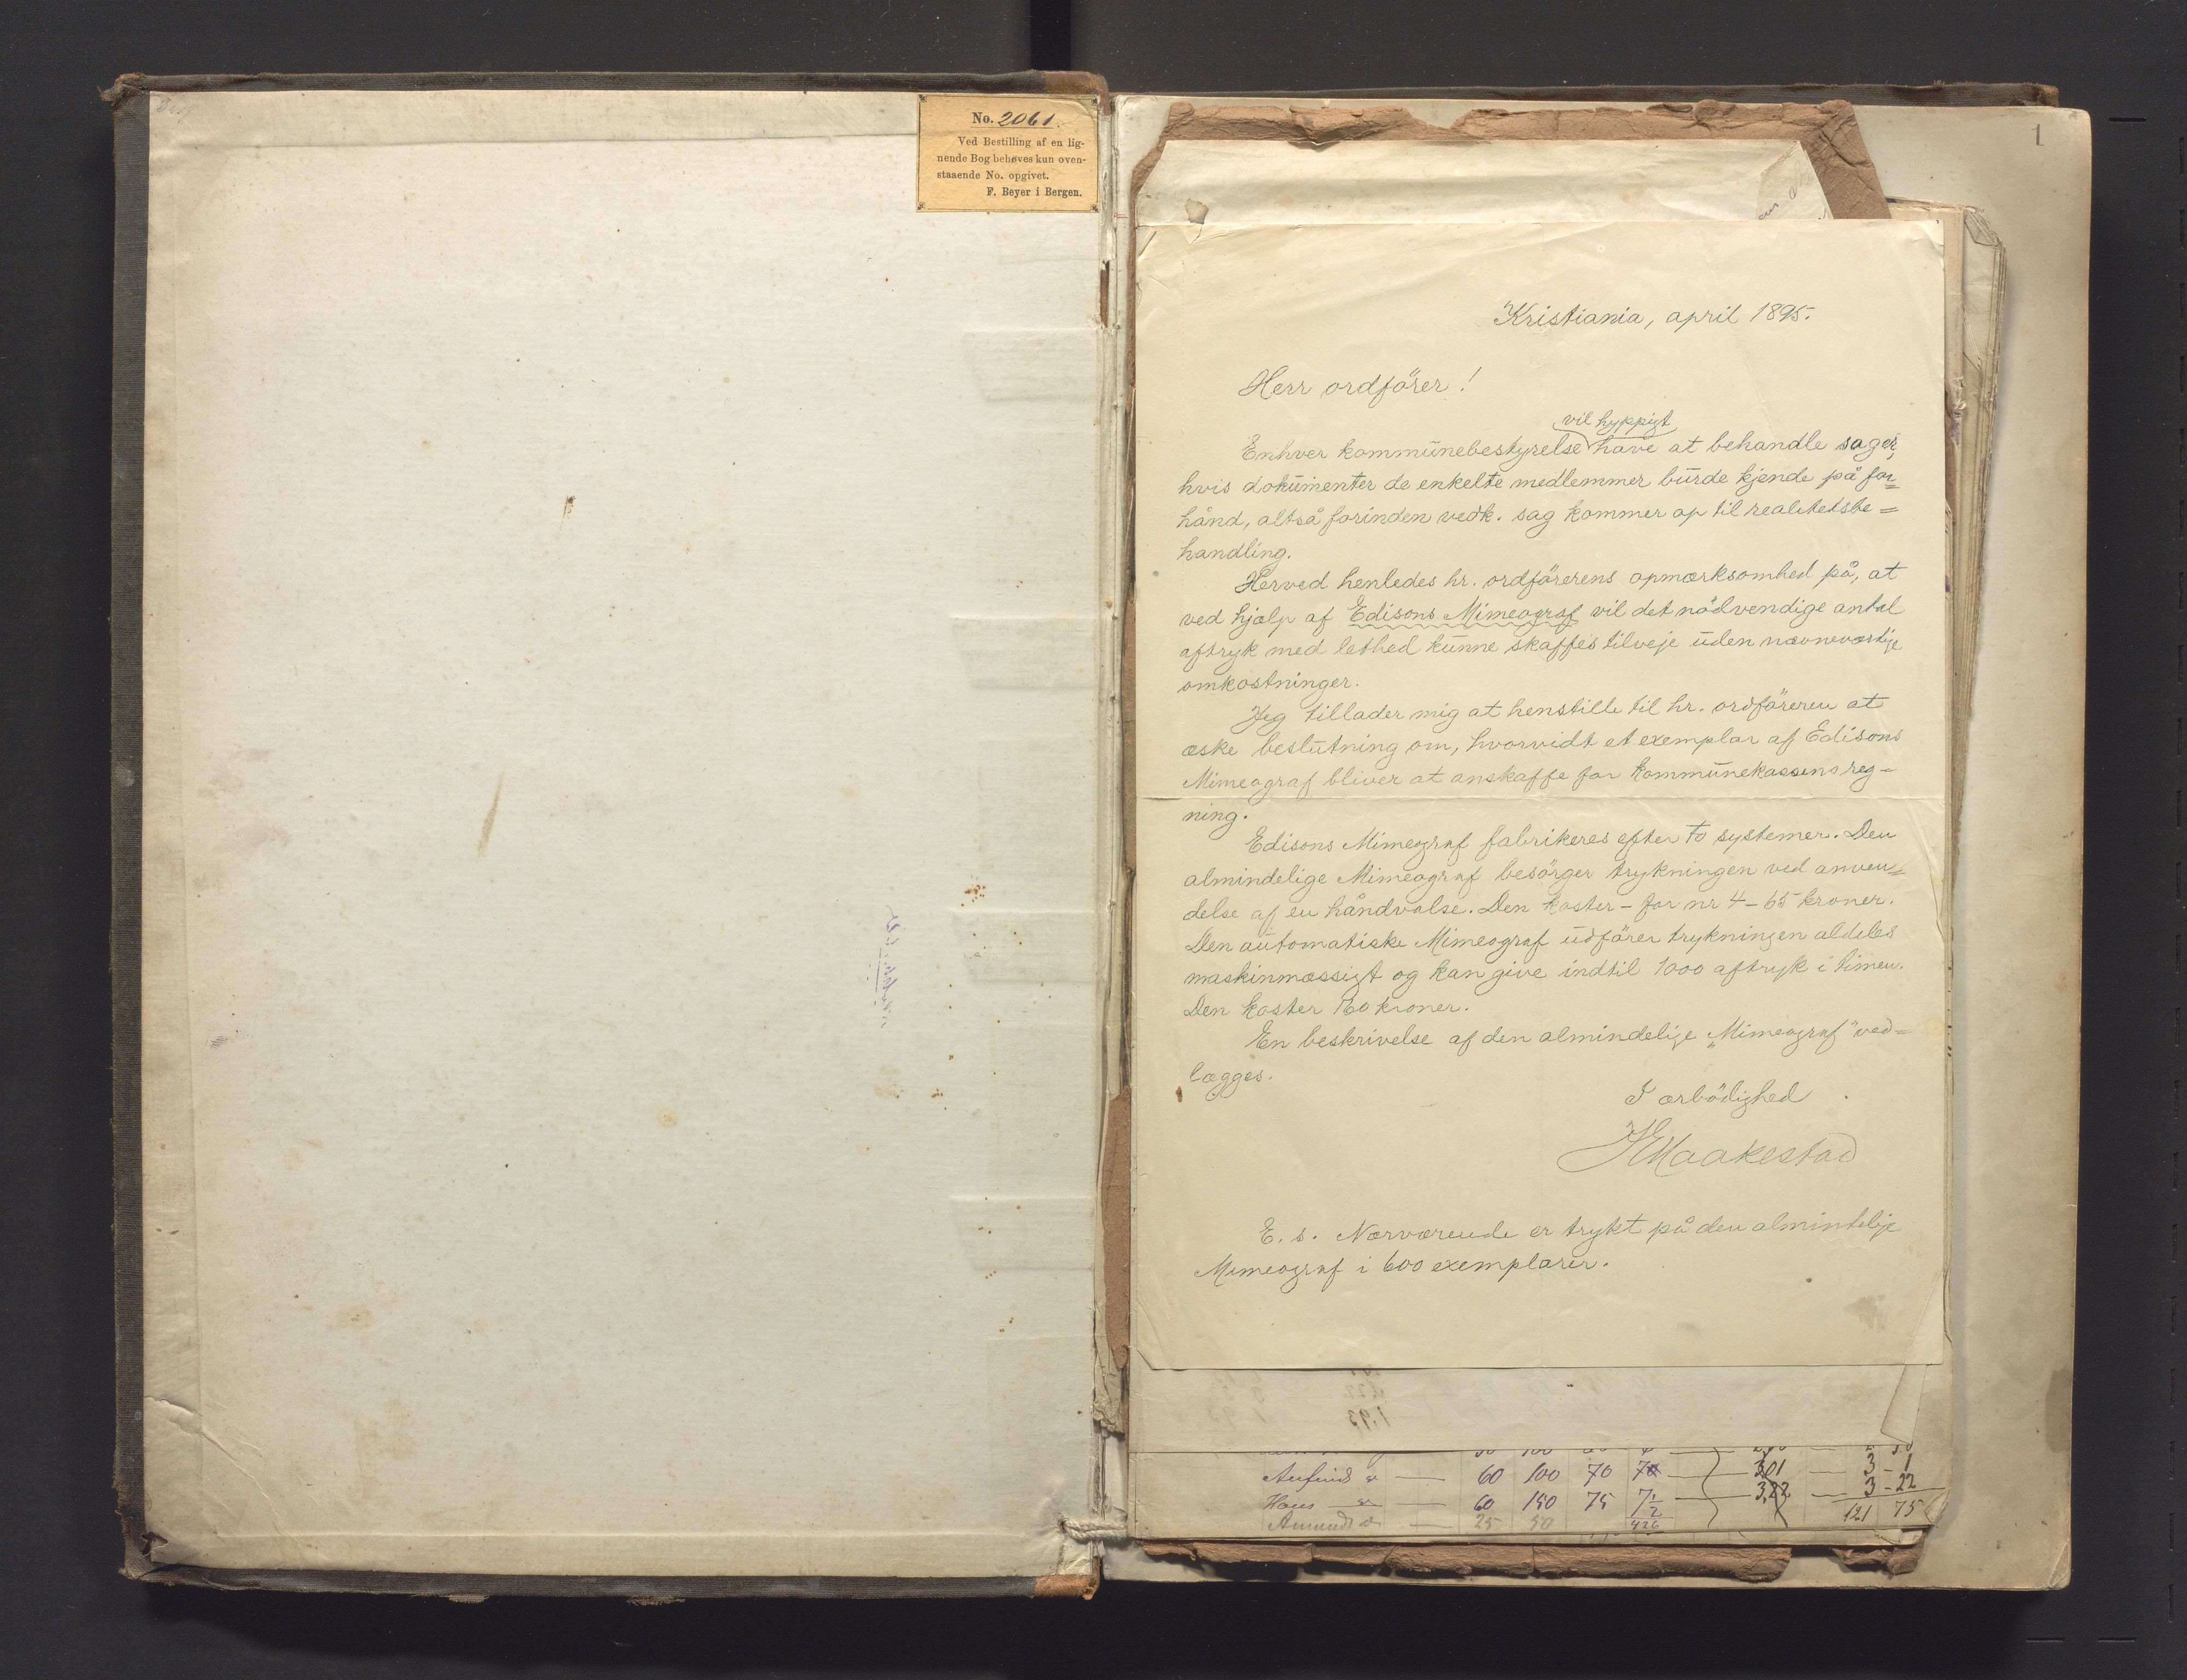 No. 2061.
Ved Bestilling af en lig-
nende Bog behøves kun oven-
staaende No. opgivet.
F. Beyer i Bergen.
1
Kristiania, april 1895.
Herr ordförer!
vil hyppigt
Enhver kommunebestyrelse have at behandle sager,
hvis dokumenter de enkelte medlemmer burde kjende på for=
hånd, altså forinden vedk. sag kommer op til realitetsbe=
handling.
Herved henledes hr. ordförerens opmærksomhed på, at
ved hjælp af Edisons Mimeograf vil det nödvendige antal
aftryk med lethed kunne skaffes tilveje uden nævneværdige
omkostninger.
Jeg tillader mig at henstille til hr. ordföreren at
æske beslutning om, hvorvidt et exemplar af Edisons
Mimeograf bliver at anskaffe for kommunekassens reg-
ning.
Edisons Mimeograf fabrikeres efter to systemer. Den
almindelige Mimeograf besörger trykningen ved anven=
delse af en håndvalse. Den koster - for nr 4 - 65 kroner.
Den automatiske Mimeograf udförer trykningen aldeles
maskinmæssigt og kan give indtil 1000 aftryk i timen.
Den koster 160 kroner.
En beskrivelse af den almindelige „Mimeograf" ved=
lægges.
I ærbödighed
Maakestad
E. s. Nærværende er trykt på den almindelige
Mimeograf i 600 exemplarer.
60 100 70 7 3,01 3-1
Hans 60 150 75 7½ 3,22 3-22
25 50 426 121 75